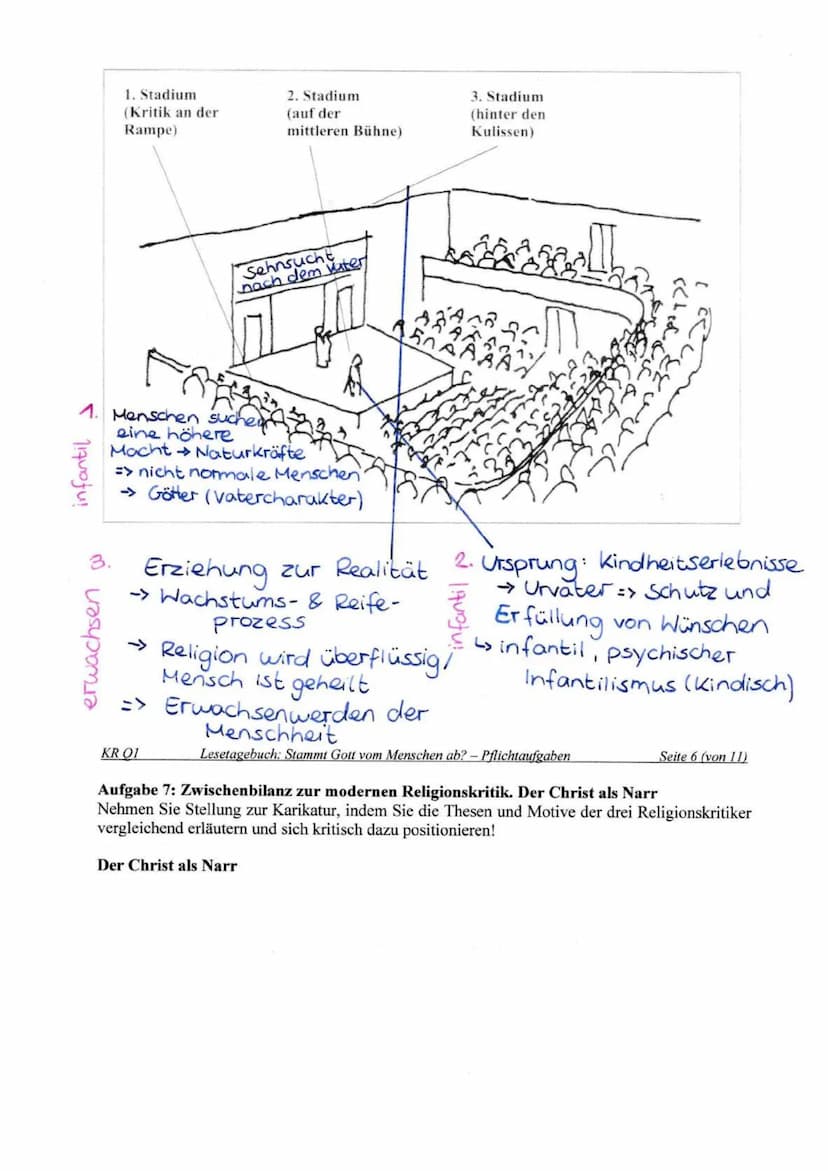 1. Stadium
(Kritik an der
Rampe)
2. Stadium
(auf der
mittleren Bühne)
3. Stadium
(hinter den
Kulissen)
Sehnsucht
nach dem Vater
1.
infantil
Menschen suchen
eine höhere
Macht → Naturkräfte
=> nicht normale Menschen
→ Götter (Vatercharakter)
3.
erwachsen
Erziehung zur Realität
→ Wachstums- & Reife-
prozess
→ Religion wird überflüssig/
Mensch ist geheilt
=> Erwachsenwerden der
Menschheit
2.
infantil
Ursprung: Kindheitserlebnisse
→ Urvater => Schutz und
Erfüllung von Wünschen
↳ infantil, psychischer
Infantilismus (Kindisch)
KR Q1 Lesetagebuch: Stammt Gott vom Menschen ab? – Pflichtaufgaben Seite 6 (von 11)
Aufgabe 7: Zwischenbilanz zur modernen Religionskritik. Der Christ als Narr
Nehmen Sie Stellung zur Karikatur, indem Sie die Thesen und Motive der drei Religionskritiker
vergleichend erläutern und sich kritisch dazu positionieren!
Der Christ als Narr